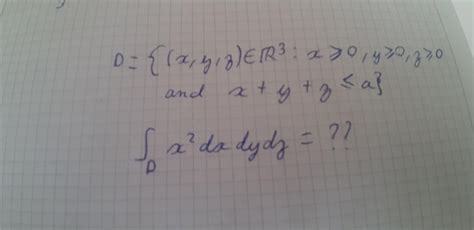 D = { (x, y, z) ∈ ℝ³ : x ⩾ 0, y ⩾ 0, z ⩾ 0
and x + y + z ≤ a}
∫_D x² dx dy dz = ??